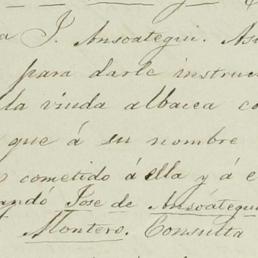 a J. Ansoategui. As
para darle instruc
la viuda albacea co
que á su nombre
cometido á ella y á e
andó José de Ansóategui
Montero. Consulta